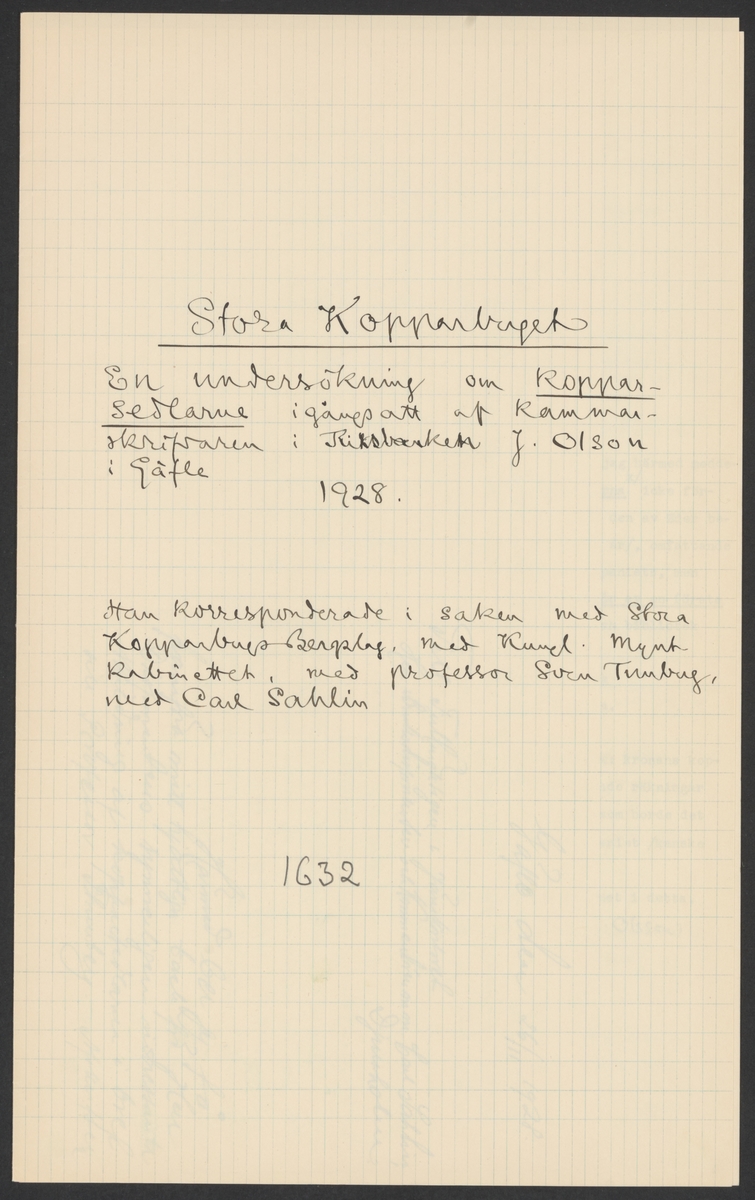 Stora Kopparberget
En undersökning om koppar-
sedlarne igångsatt af kammar-
skrifvaren i Riksbanken J. Olson
i Gäfle
1928.
Han korresponderade i saken med Stora
Kopparbergs Bergslag, med Kungl. Mynt-
kabinettet, med professor Sven Tunberg,
med Carl Sahlin
1632